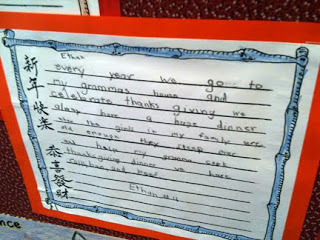 Ethan
every year we go to
my grammas house and
celebrate thanks giving we
alway have a huge dinner
the girls in my family were
old enough they sleep over
and help my gramma cook
thanksgiving dinner we have
Ethan #11
新年快乐
恭喜發財
nce